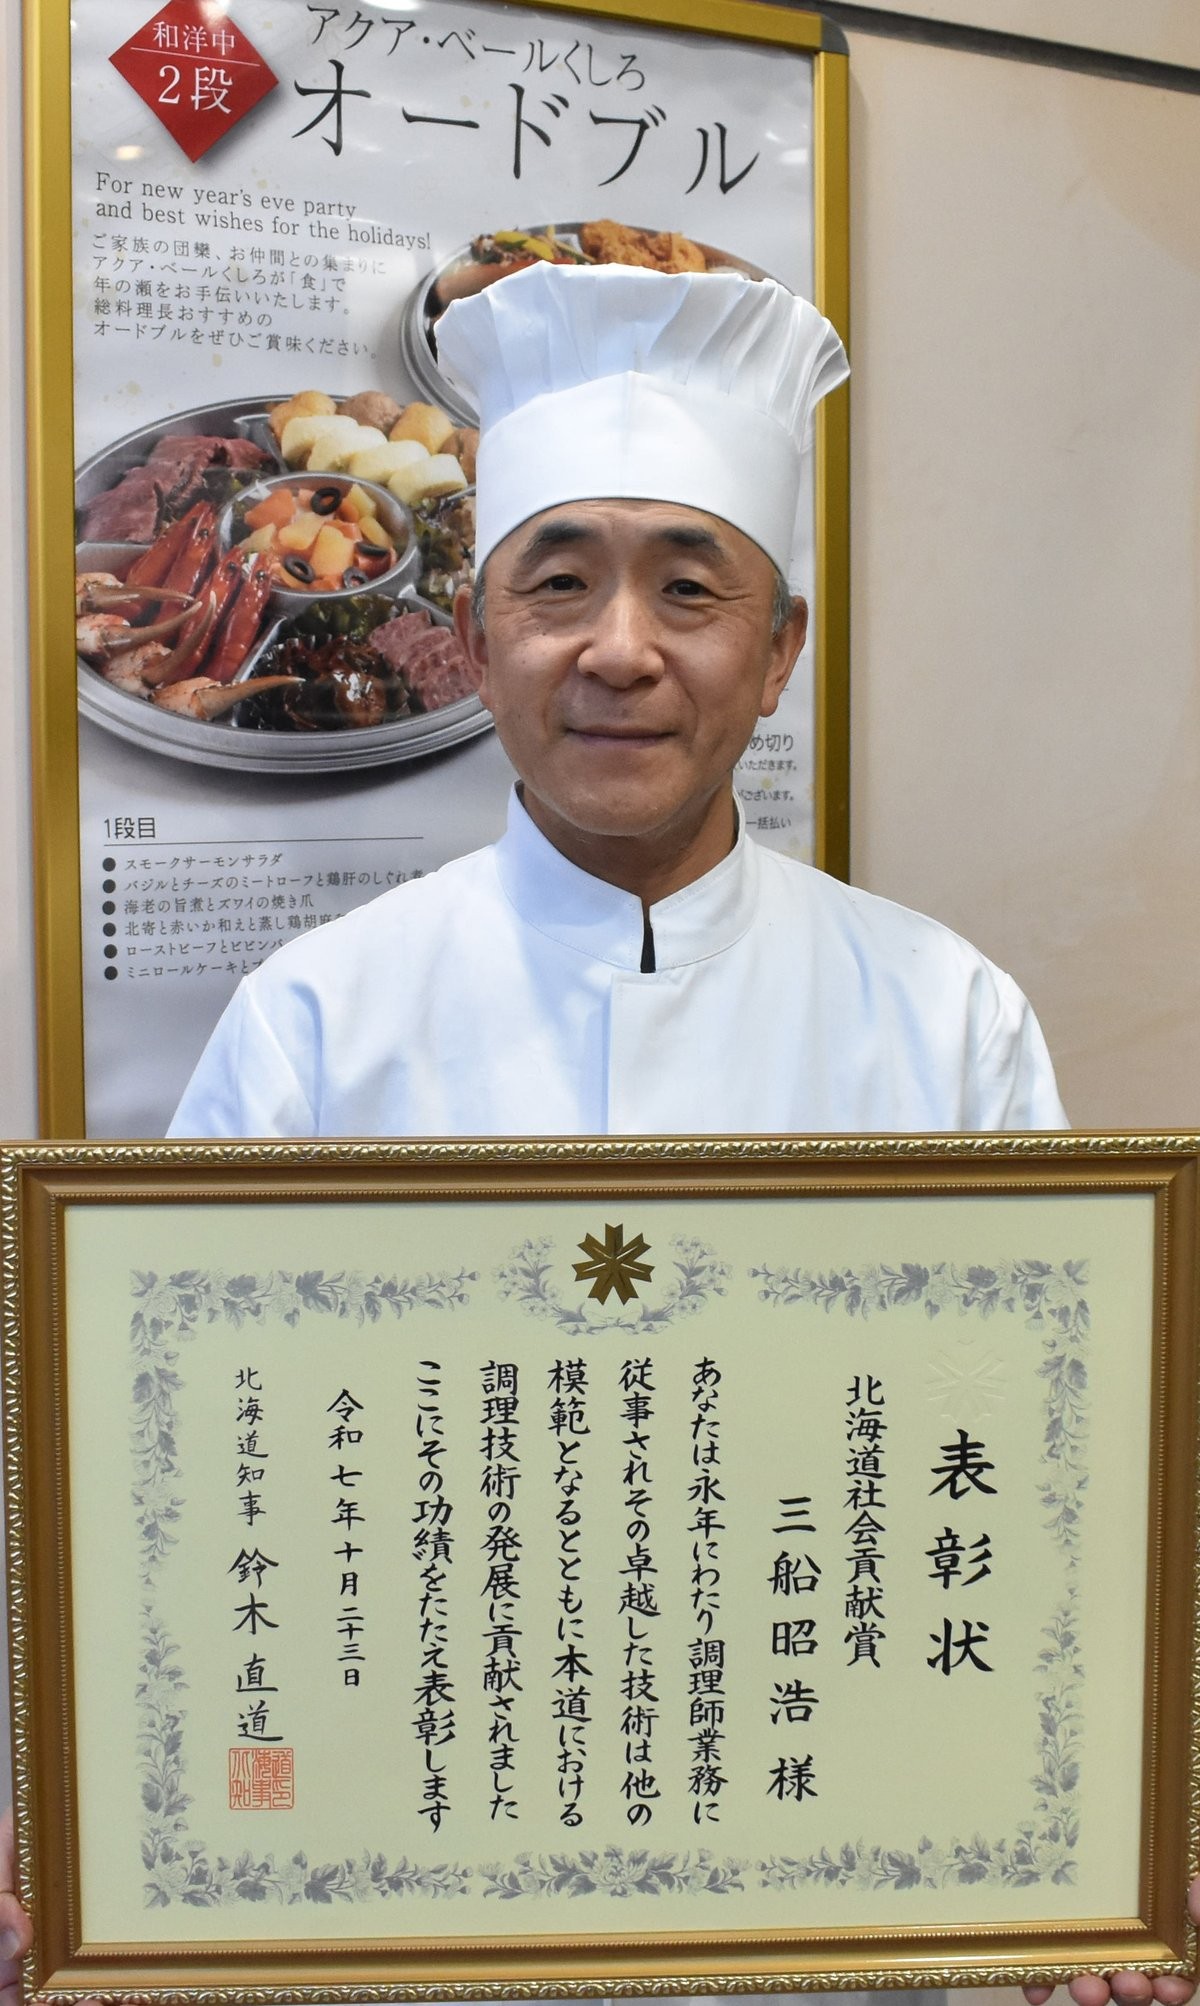 和洋中
2段
アクア・ベールくしろ
オードブル
For new year's eve party
and best wishes for the holidays!
ご家族の団欒、お仲間との集まりに
アクア・ベールくしろが「食」で
年の瀬をお手伝いいたします。
総料理長おすすめの
オードブルをぜひご賞味ください。
め切り
いただきます。
ございます。
一括払い
1段目
●スモークサーモンサラダ
●バジルとチーズのミートローフと鶏肝のしぐれ煮
●海老の旨煮とズワイの焼き爪
●北寄と赤いか和えと蒸し鶏胡麻
●ローストビーフとビビンバ
●ミニロールケーキとプ
表彰状
北海道社会貢献賞
三船昭浩様
あなたは永年にわたり調理師業務に
従事されその卓越した技術は他の
模範となるとともに本道における
調理技術の発展に貢献されました
ここにその功績をたたえ表彰します
令和七年十月二十三日
北海道知事 鈴木直道